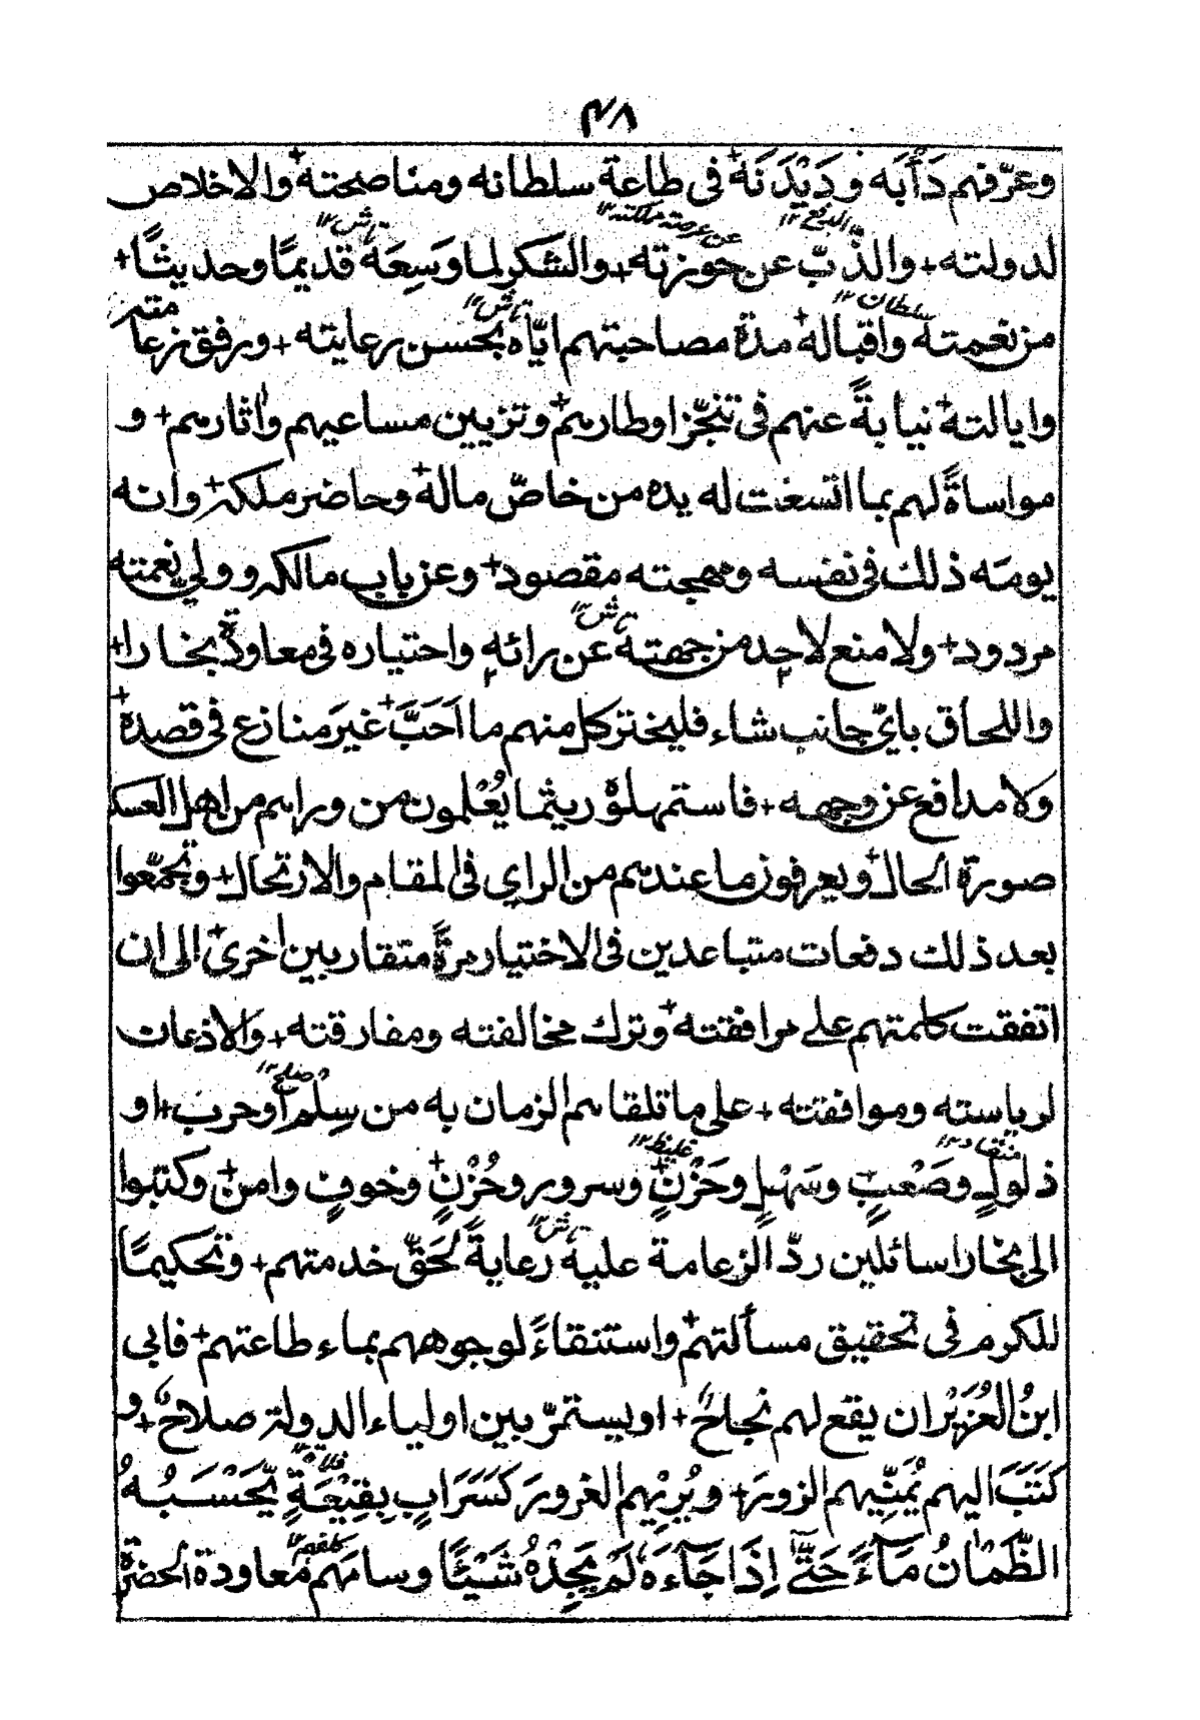 ٤٨
وعرّفهم دَأبَه ودَيْدَنَه + فى طاعة سلطانه ومناصحته + والاخلاص
لدولته + والذّبّ عن حوزته + والشكر لما وَسِعَه قديمًا وحديثًا +
من نعمته واقباله + مدة مصاحبتهم ايّاه بحسن رعايته + ورفق زعامته
وايالته + نيابةً عنهم فى تنجّز اوطارهم + وتزيين مساعيهم واٰثارهم + و
مواساةً لهم بما اتسعت له يده من خاصّ ماله + وحاضر ملكه + وانه
يومَه ذلك فى نفسه ومهجته مقصود + وعن باب مالكه وولي نعمته
مردود + ولا منع لاحد من جهته عن رائه واختياره فى معاودة بخارا +
واللحاق بايّ جانب شاء فليختر كل منهم ما اَحَبَّ + غيرَ منازع فى قصده +
ولا مدافع عن وجهه + فاستمهلوه ريثما يُعْلمون من ورائهم من اهل العسكر
صورة الحال + ويعرفون ما عندهم من الراي فى المقام والارتحال + وتجمّعوا
بعد ذلك دفعات متباعدين فى الاختيار مرةً متقاربين اخرى + الى ان
اتفقت كلمتهم على مرافقته + وترك مخالفته ومفارقته + والاذعان
لرياسته وموافقته + على ما تلقاهم الزمان به من سِلْم اوحرب + او
ذلولٍ وصَعْبٍ + وسَهْلٍ وحَزْنٍ + وسرور وحُزْنٍ + وخوفٍ وامن + وكتبوا
الى بخارا سائلين ردّ الزعامة عليه رعايةً لحَقّ خدمتهم + وتحكيمًا
للكرم فى تحقيق مسألتهم + واستنقاءً لوجوههم بماء طاعتهم + فابى
ابنُ العُزَيْر ان يقع لهم نجاحٌ + اويستمرّ بين اولياء الدولة صلاحٌ + و
كَتَبَ اليهم يُمَنّيهم الزور + ويُرِيْهم الغرورَ كَسَرَابٍ بِقِيْعَةٍ يَّحْسَبُهُ
الظَّمْاٰنُ مَآءً حَتّٰٓى اِذَا جَآءَهٗ لَمْ يَجِدْهُ شَيْـًٔا وسامَهم معاودة الحضرة